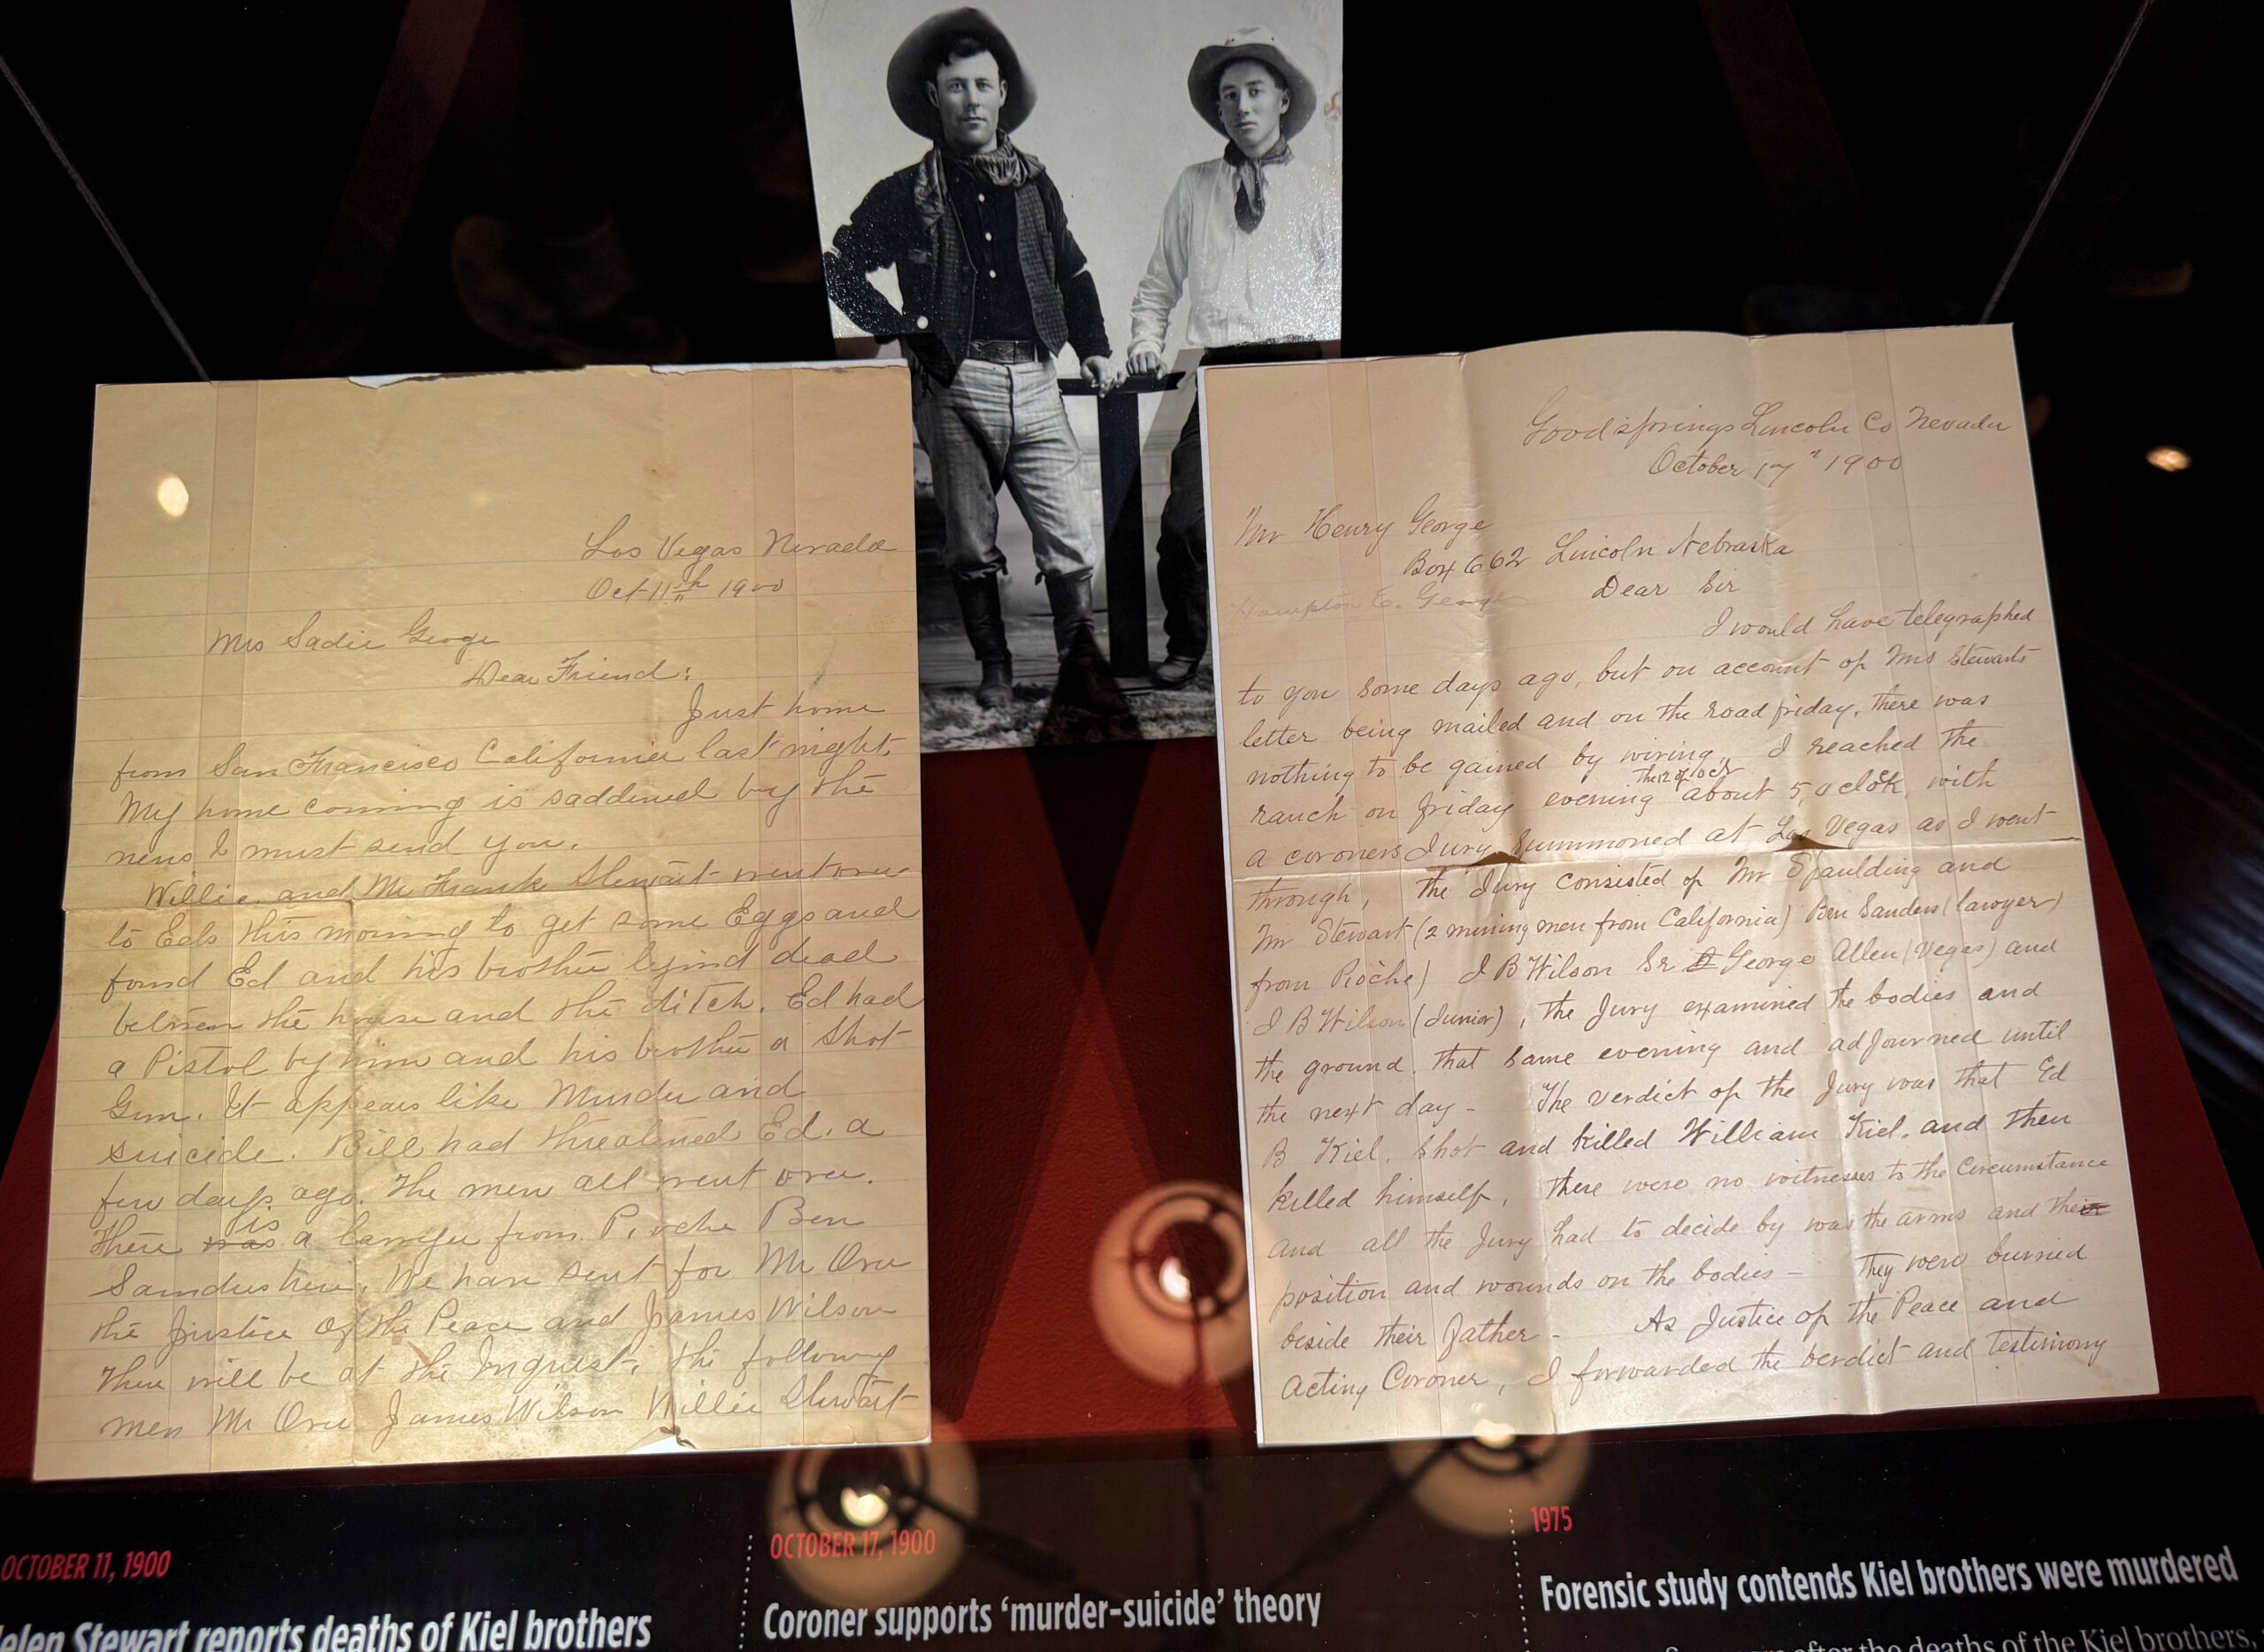 Las Vegas Nevada
Oct 11th 1900
Mrs Sadie George
Dear Friend:
Just home
from San Francisco California last night.
My home coming is saddened by the
news I must send you.
Willie and Mr Frank Stewart went over
to Eds this morning to get some Eggs and
found Ed and his brother lyind dead
between the house and the ditch. Ed had
a Pistol by him and his brother a Shot
Gun. It appears like Murder and
suicide. Bill had threatened Ed. a
few days ago. The men all went over.
is
There was a lawyer from Pioche Ben
Sanders here. We have sent for Mr Over
the Justice of the Peace and James Wilson
There will be at the Inquest. the following
men Mr Over James Wilson Willie Stewart
Goodsprings Lincoln Co Nevada
October 17" 1900
Mr Henry George
Box 662 Lincoln Nebraska
Hampton E. George
Dear Sir
I would have telegraphed
to you some days ago, but on account of Mrs Stewarts
letter being mailed and on the road friday, there was
nothing to be gained by wiring, I reached the
The 12 of Oct
ranch on friday evening about 5, oclok, with
a coroners Jury summoned at Las Vegas as I went
through, the Jury consisted of Mr Spaulding and
Mr Stewart (2 mining men from California) Ben Sanders (lawyer)
from Pioche) J B Wilson Sr George Allen (Vegas) and
J B Wilson (Junior), the Jury examined the bodies and
the ground, that same evening and adjourned until
the next day - The verdict of the Jury was that Ed
B Kiel, shot and killed William Kiel, and then
killed himself, there were no witnesses to the Circumstance
and all the Jury had to decide by was the arms and their
position and wounds on the bodies - They were burried
beside their father - As Justice of the Peace and
Acting Coroner, I forwarded the verdict and testimony
OCTOBER 11, 1900
elen Stewart reports deaths of Kiel brothers
OCTOBER 17, 1900
Coroner supports ‘murder-suicide’ theory
1975
Forensic study contends Kiel brothers were murdered
after the deaths of the Kiel brothers